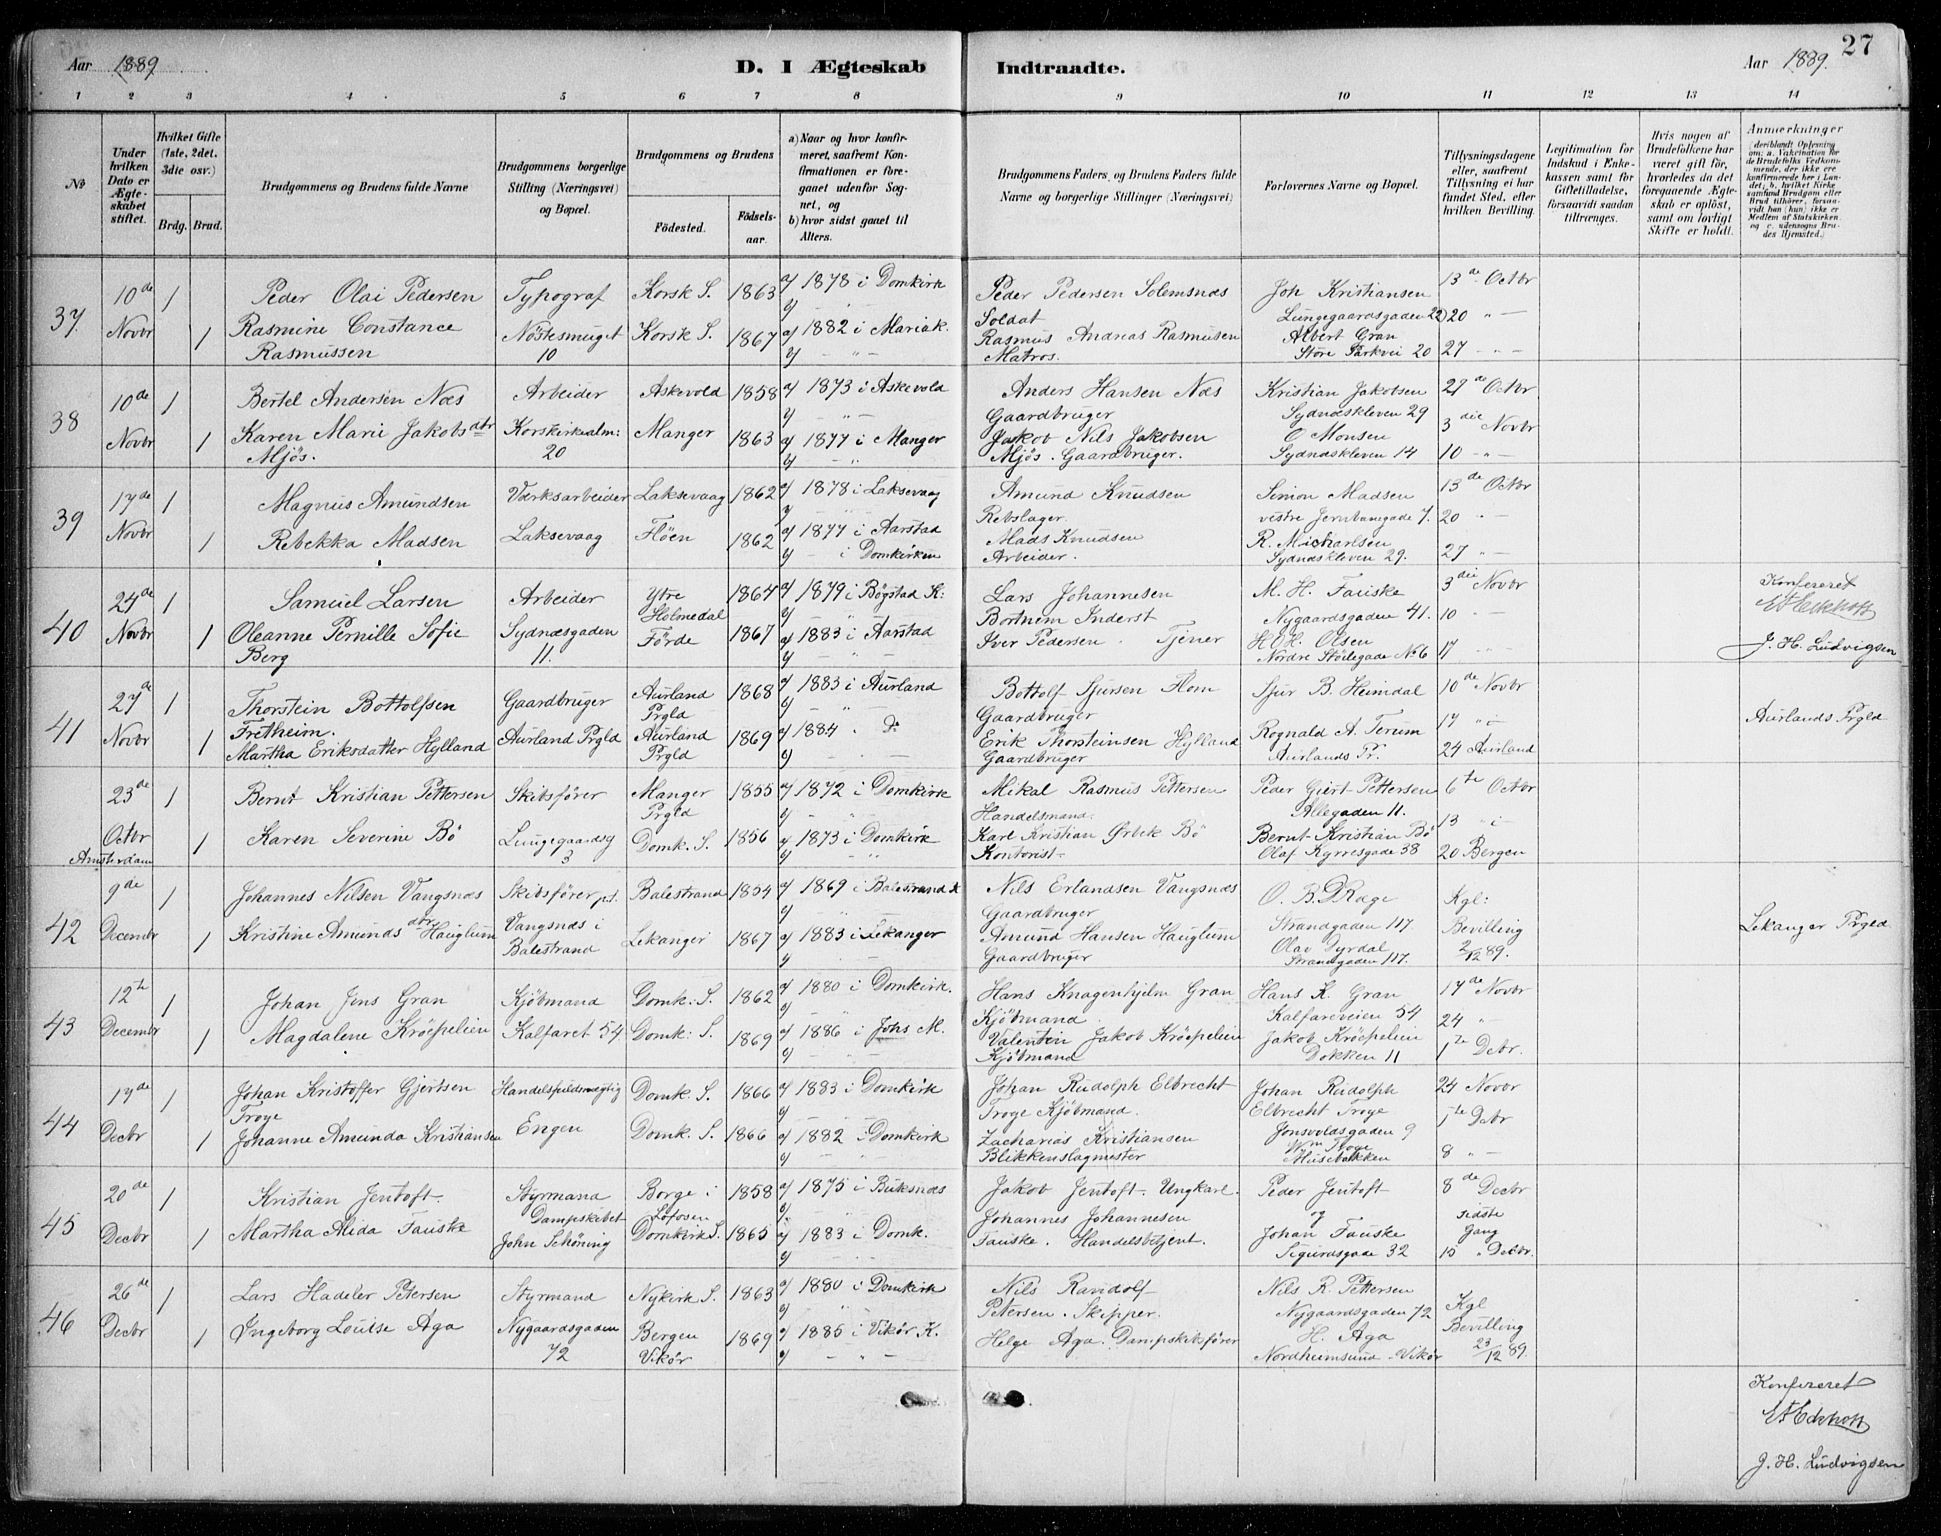 27
Aar 1889
D. I Ægteskab Indtraadte.
Aar 1889.
1 2 3 4 5 6 7 8 9 10 11 12 13 14
No
Under hvilken Dato er Ægteskabet stiftet.
Hvilket Gifte (1ste, 2det, 3die osv.)
Brdg. Brud.
Brudgommens og Brudens fulde Navne
Brudgommens borgerlige Stilling (Næringsvei) og Bopæl.
Brudgommens og Brudens
Födested.
Födselsaar.
a) Naar og hvor konfirmeret, saafremt Konfirmationen er foregaaet udenfor Sognet, og
b) hvor sidst gaaet til Alters.
Brudgommens Faders og Brudens Faders fulde Navne og borgerlige Stillinger (Næringsvei)
Forlovernes Navne og Bopæl.
Tillysningsdagene eller, saafremt Tillysning ei har fundet Sted, efter hvilken Bevilling.
Legitimation for Indskud i Enkekassen samt for Giftetilladelse, forsaavidt saadan tiltrænges.
Hvis nogen af Brudefolkene har været gift för, hvorledes da det foregaaende Ægteskab er oplöst, samt om lovligt Skifte er holdt.
Anmerkninger (deriblandt Oplysning om: a. Vakcination for de Brudefolks Vedkommende, der ikke ere konfirmerede her i Landet; b. hvilket Kirkesamfund Brudgom eller Brud tilhörer, forsaavidt han (hun) ikke er Medlem af Statskirken og c. udensogns Brudes Hjemsted.)
37 10de Novbr 1 Peder Olai Pedersen Typograf Korsk S. 1863 a) 1878 i Domkirk Peder Pedersen Solemsnæs Joh Kristiansen 13de Octbr
b) Soldat Lungegaardsgaden 22) 20 " —
1 Rasmine Constance Nöstesmuget Korsk S. 1867 a) 1882 i Mariak. Rasmus Andreas Rasmusen Albert Gran
Rasmussen 10 b) — " — Matros. Store Parkvei 20 27 - " -
38 10de Novbr 1 Bertel Andersen Næs Arbeider Askevold 1858 a) 1873 i Askevold Anders Hansen Næs Kristian Jakobsen 27de Octbr
b) — " — Gaardbruger Sydnæskleven 29 3die Novbr
1 Karen Marie Jakobsdtr Korskirkealm: Manger 1863 a) 1877 i Manger Jakob Nils Jakobsen O Monsen
Mjös. 20 b) — " Mjös. Gaardbruger. Sydnæskleven 14 10 - " -
39 17de Novbr 1 Magnus Amundsen Værksarbeider Laksevaag 1862 a) 1878 i Laksevaag Amund Knudsen Simon Madsen 13de Octbr
Rebslager. vestre Jernbanegade 7. 20 " —
1 Rebekka Madsen Laksevaag Flöen 1862 a) 1877 i Aarstad Mads Knudsen R. Michaelsen
b) — i Domkirken Arbeider. Sydnæskleven 29. 27 " —
40 24de Novbr 1 Samuel Larsen Arbeider Ytre Holmedal 1864 a) 1879 i Bøgstad K: Lars Johannesen M. H. Fauske 3die Novbr Konfereret
b) Bortnem Inderst Nygaardsgaden 41. 10 - —
1 Oleanne Pernille Sofie Sydnæsgaden Förde 1867 a) 1883 i Aarstad Iver Pedersen. Tjener H. Olsen J. H. Ludvigsen
Berg 11. b) Nordre Stölegade No 6 17 " —
41 27de Novbr 1 Thorstein Bottolfsen Gaardbruger Aurland Prgld 1868 a) 1883 i Aurland Bottolf Sjursen Flom Sjur B. Heimdal 10de Novbr
Fretheim. b) — " — Gaardbruger 17 " — Aurlands Prgld
1 Martha Eriksdatter Hylland Aurland Prgld Aurland Prgld 1869 a) 1884 . Do Erik Thorsteinsen Hylland Rognald A. Terum
b) — Gaardbruger Aurlands Pr. 24 Aurland
23de Octbr Amsterdam 1 Bernt Kristian Pettersen Skibsförer Manger Prgld 1855 a) 1872 i Domkirk Mikal Rasmus Pettersen Peder Giert Pettersen 6te Octbr
b) — " — Handelsmand. Allegaden 11. 13 " —
1 Karen Severine Bö Lungegaardsg 3 Domk. S. 1856 a) 1873 i Domkirk Karl Kristian Ørbek Bö Bernt Kristian Bö
b) — " Kontorist Olaf Kyrresgade 38 20 Bergen
42 9de Decembr 1 Johannes Nilsen Vangsnæs Skibsförer ps. Balestrand 1854 a) 1869 i Balestrand k Nils Erlandsen Vangsnæs O. B. Kgl:
b) Gaardbruger Strandgaden 117. Bevilling
1 Kristine Amundsdtr Hauglum Vangsnæs i Balestrand Lekanger 1867 a) 1883 i Lekanger Amund Hansen Hauglum Olav Dyrdal 2/12 89. Lekanger Prgld
b) Gaardbruger Strandgaden 117.
43 12te Decembr 1 Johan Jens Gran Kjöbmand Domk: S. 1862 a) 1880 i Domkirk. Hans Knagenhjelm Gran Hans K. Gran 17de Novbr
b) — — Kjöbmand Kalfareveien 54 24 "
1 Magdalene Kröepelien Kalfaret 54 Domk: S. 1869 a) 1886 i Johs M. Valentin Jakob Kröepelien Jakob Kröepelien
b) — " — Kjöbmand Dokken 11 1te Debr.
44 17de Decbr 1 Johan Kristoffer Gjertsen Handelsfuldmægtig Domk. S. 1866 a) 1883 i Domkirk Johan Rudolph Elbrecht Johan Rudolph 24 Novbr
Troye b) — Troye Kjöbmand. Elbrecht Troye 1te Debr
1 Johanne Amunda Kristiansen Engen Domk. S. 1866 a) 1882 i Domkirk Zacharias Kristiansen Jonsvoldsgaden 9
b) — " Blikkenslagmester Wm Troye Husebakken 8 " —
45 20de Decbr 1 Kristian Jentoft Styrmand Borge i Lofoten 1858 a) 1875 i Buksnæs Jakob Jentoft - Ungkarl. Peder Jentoft 8de Decbr
Dampskibet b) — " Johannes Johannesen og sidste
1 Martha Alida Fauske John Schöning Domkirk S. 1865 a) 1883 i Domk. Fauske. Handelsbetjent. Johan Fauske Gang
b) — " — Sigurdsgade 32 15 " Decbr.
46 26de Decbr 1 Lars Hadeler Petersen Styrmand Nykirk S. 1863 a) 1880 i Domkirk Nils Randolf Nils R. Pettersen
b) " — Petersen. Skipper. Nygaardsgaden 72 Kgl
1 Ingeborg Louise Aga Nygaardsgaden 72 Bergen Vikör 1869 a) 1885 i Vikör K. Helge Aga. Dampskibsförer H. Aga Bevilling
b) — " — Nordheimsund - Vikör 23/12 89.
Konfereret
J. H. Ludvigsen